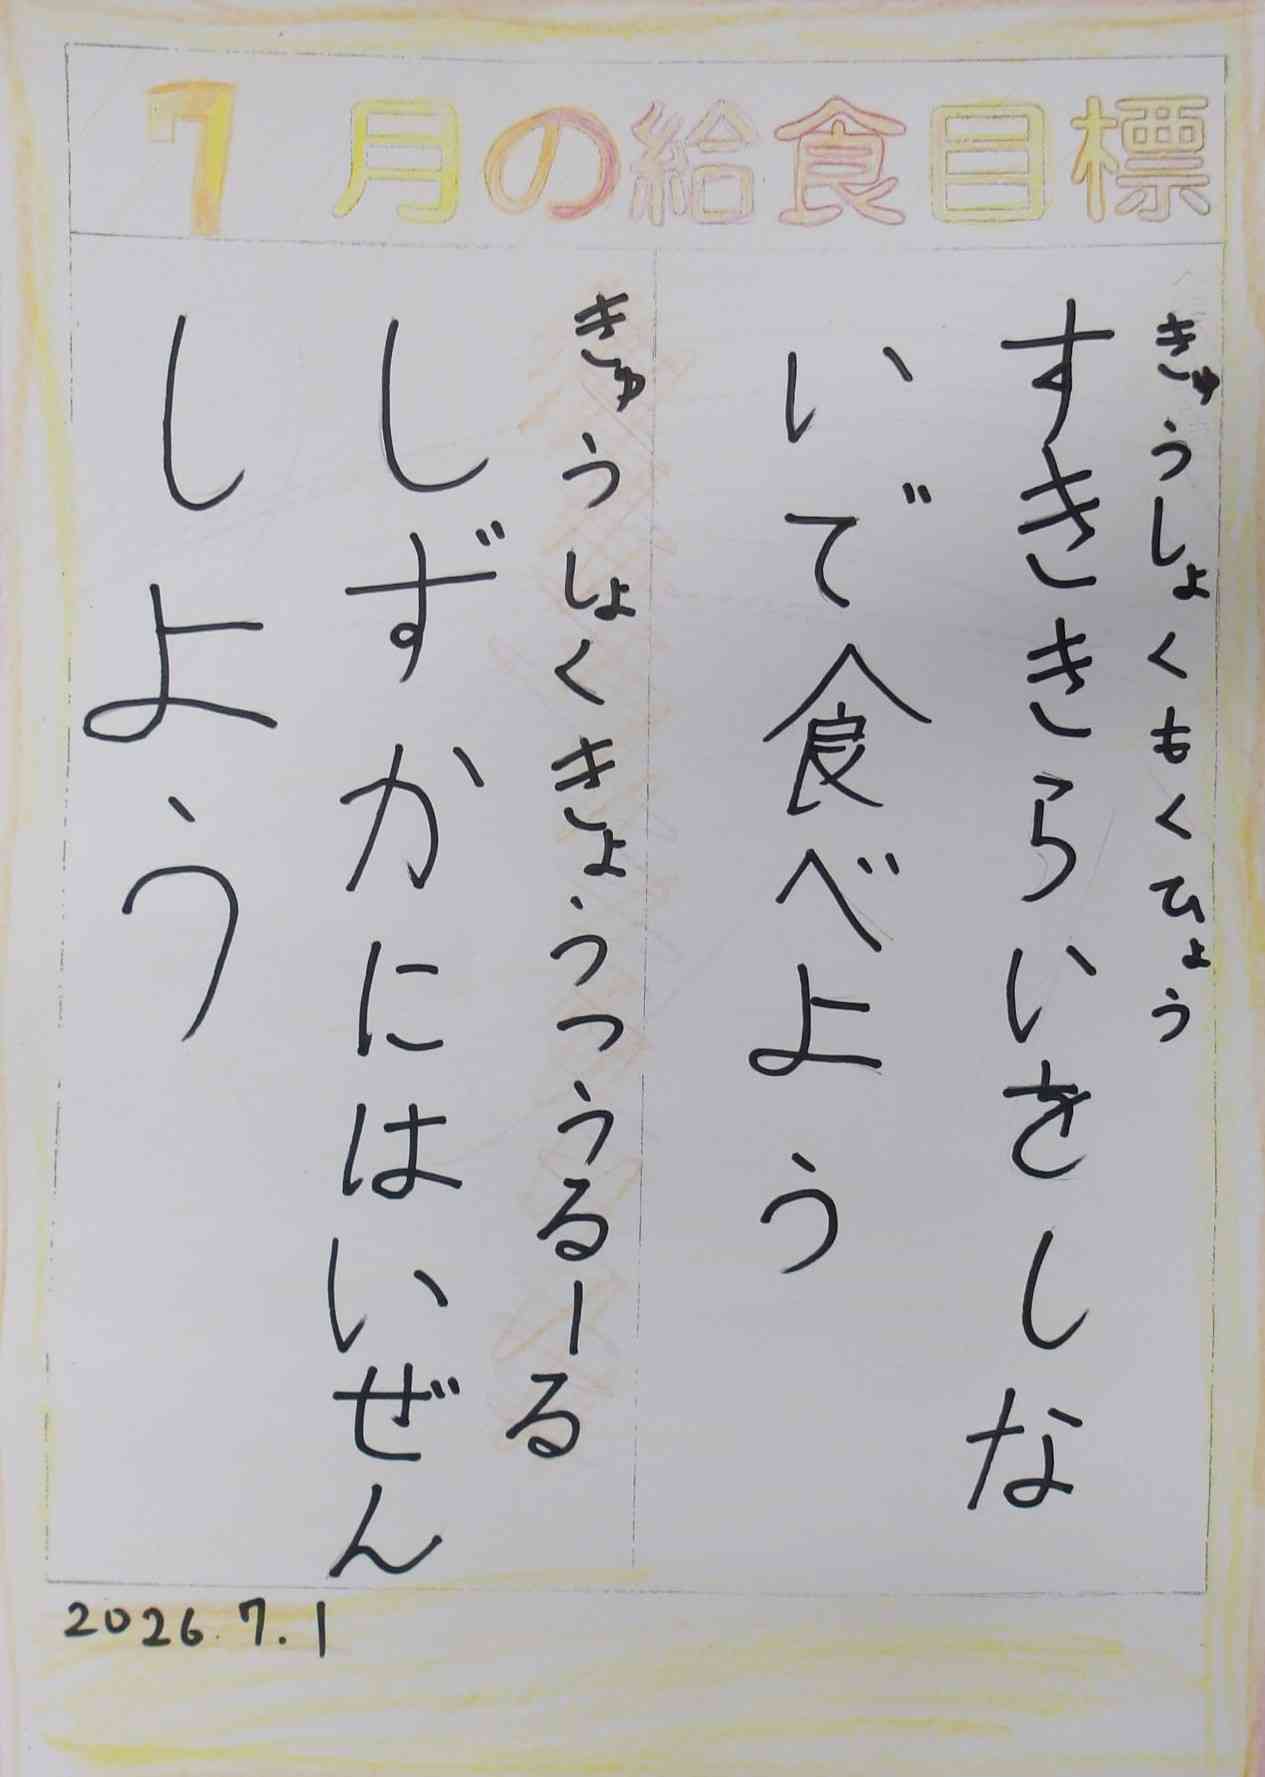 7月の給食目標
きゅうしょくもくひょう
すききらいをしな
いで食べよう
きゅうしょくきょうつうるーる
しずかにはいぜん
しよう
2026.7.1